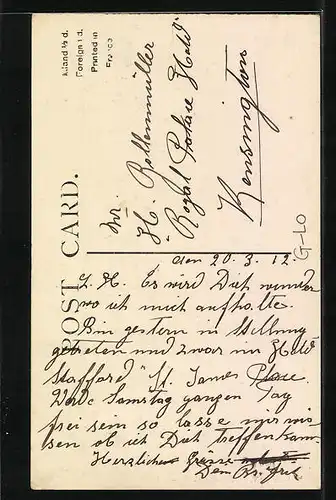 POST CARD.
Inland ½ d.
Foreign 1 d.
Printed in
France
Mr.
H. Bollenmüller
"Royal Palace Hotel"
Kensington
G-LO
den 20. 3. 12.
L. H. Es wird Dich wundern
wo ich mich aufhalte.
Bin gestern in Stellung
getreten und zwar im Hotel
Stafford" St. James Place.
Werde Samstag ganzen Tag
frei sein so lasse mir wis
sen ob ich Dich treffen kann.
Herzliche Grüsse
Dein